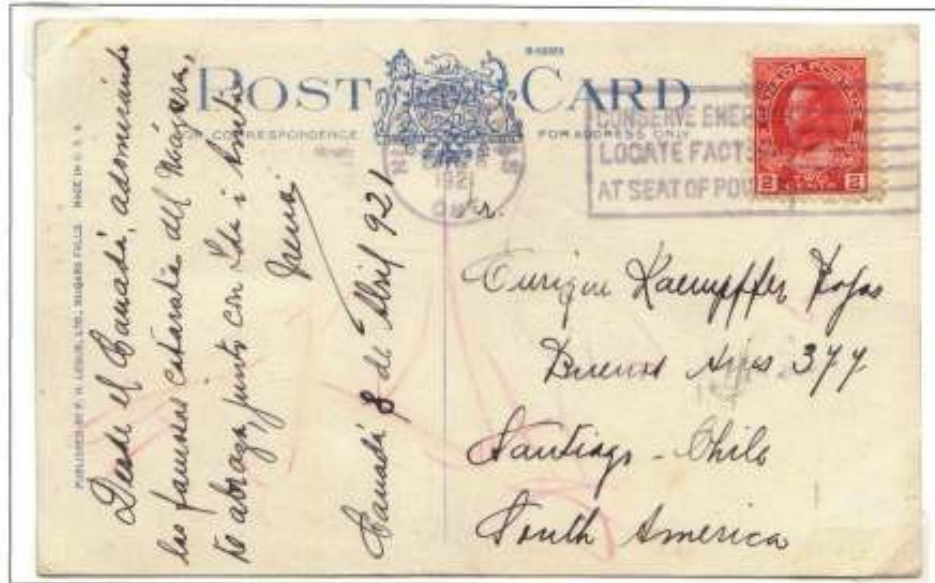 POST CARD
FOR CORRESPONDENCE
FOR ADDRESS ONLY
CONSERVE ENER
LOCATE FACTS
AT SEAT OF POW
192
ONT
CANADA POSTAGE
2 CENTS 2
PUBLISHED BY F. H. LESLIE, LTD., NIAGARA FALLS MADE IN U. S. A.
Desde el Canadá, admirando
las famosas cataratas del Niágara,
te abraza, junto con Ida i Anita
Canadá 8 de Abril 921
Sr.
Enrique Kaempffer Rojas
Buenos Aires 377
Santiago - Chile
South America